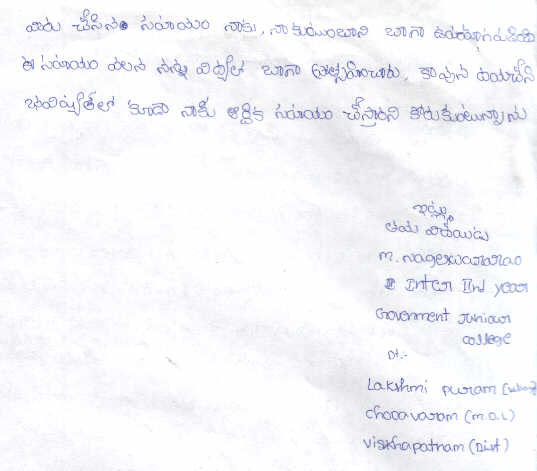 వారు చేసిన సహాయం నాకు, నా కుటుంబాని బాగా ఉపయోగపడింది
ఈ సహాయం వలన నన్ను విద్యలో బాగా ప్రోత్సహించారు, కావున దయచేసి
భవిష్యత్‌లో కూడా నాకు ఆర్థిక సహాయం చేస్తారని కోరుకుంటున్నాను
ఇట్లు
తమ విధేయుడు
m. nageswararao
Inter IInd year
Government Juniour
college
Dt:-
Lakshmi puram
chodavaram (m.d.L)
visakhapatnam (Dist)